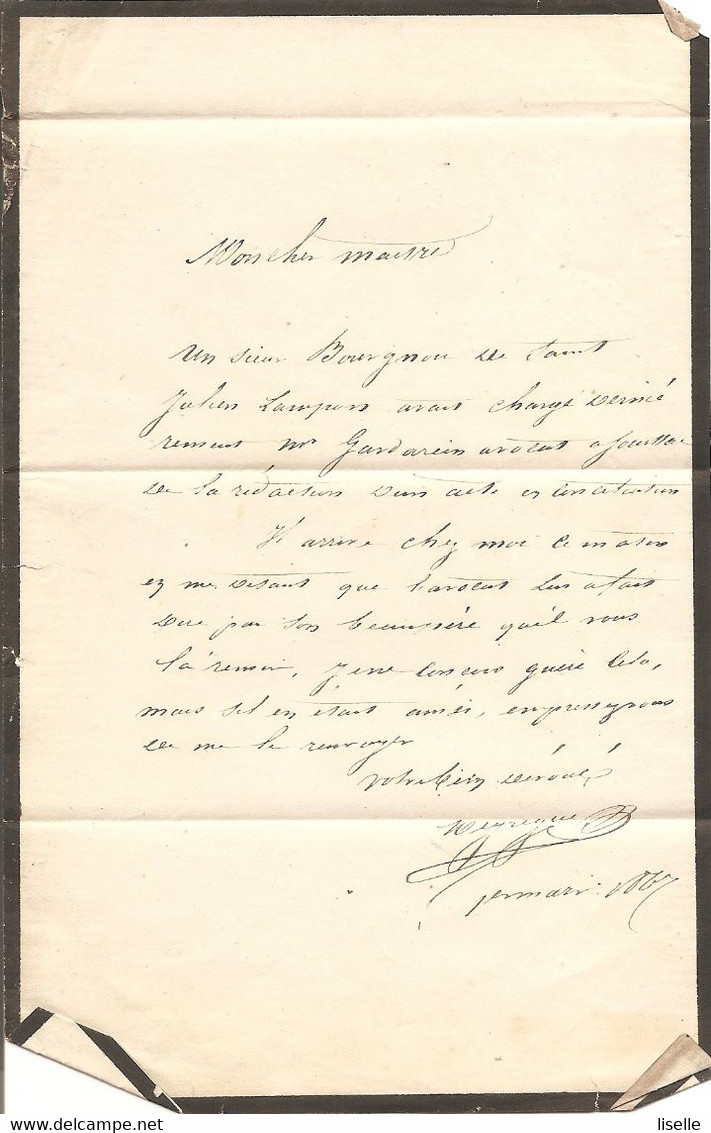 Mon cher maitre
Un sieur Bourgnou de Saint
Julien Lampon avait chargé derniè
rement Mr Gardarein avocat a
de la rédaction d'un acte en conciliation
Il arrive chez moi ce matin
en me disant que l'avocat lui a fait
dire par son beaupère qu'il vous
l'a remis, je ne concois guère cela,
mais s'il en était ainsi, empressez vous
de me le renvoyer
votre bien dévoué
1er mars 1867
liselle
© www.delcampe.net